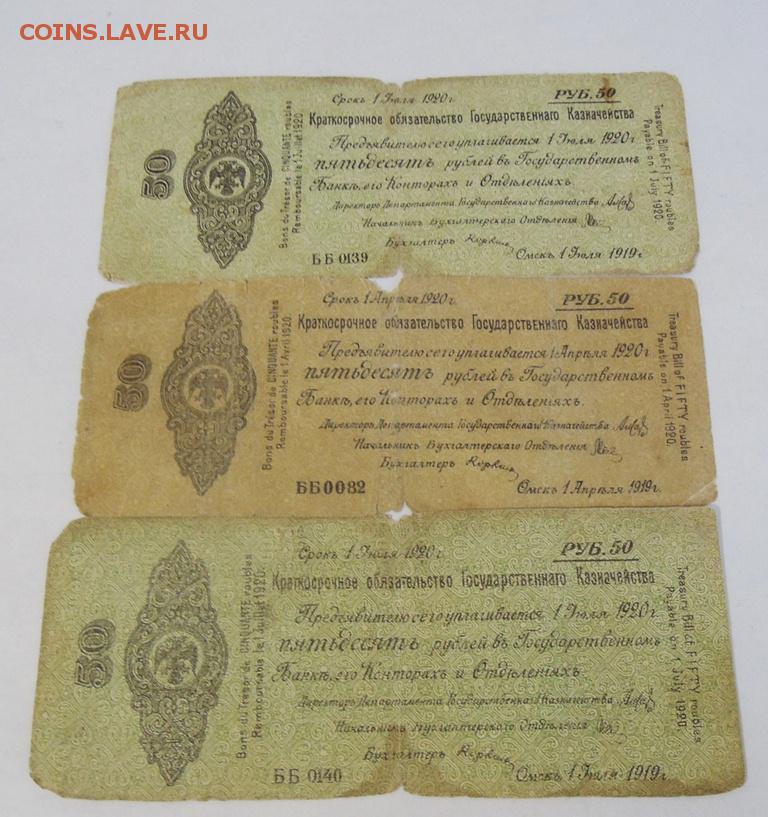 COINS.LAVE.RU
50
Bons du Trésor de CINQUANTE roubles
Remboursable le 1 Juillet 1920.
Срокъ 1 Іюля 1920 г.
РУБ. 50
Краткосрочное обязательство Государственнаго Казначейства
Предъявителю сего уплачивается 1 Іюля 1920 г.
пятьдесятъ рублей въ Государственномъ
Банкѣ, его Конторахъ и Отдѣленіяхъ.
Директоръ Департамента Государственнаго Казначейства
Начальникъ Бухгалтерскаго Отдѣленія
Бухгалтеръ
ББ 0139
Омскъ 1 Іюля 1919 г.
Treasury Bill of FIFTY roubles
Payable on 1 July 1920.
50
Bons du Trésor de CINQUANTE roubles
Remboursable le 1 Avril 1920.
Срокъ 1 Апрѣля 1920 г.
РУБ. 50
Краткосрочное обязательство Государственнаго Казначейства
Предъявителю сего уплачивается 1 Апрѣля 1920 г
пятьдесятъ рублей въ Государственномъ
Банкѣ, его Конторахъ и Отдѣленіяхъ.
Директоръ Департамента Государственнаго Казначейства
Начальникъ Бухгалтерскаго Отдѣленія
Бухгалтеръ
ББ 0082
Омскъ 1 Апрѣля 1919 г.
Treasury Bill of FIFTY roubles
Payable on 1 April 1920.
50
Bons du Trésor de CINQUANTE roubles
Remboursable le 1 Juillet 1920.
Срокъ 1 Іюля 1920 г.
РУБ. 50
Краткосрочное обязательство Государственнаго Казначейства
Предъявителю сего уплачивается 1 Іюля 1920 г.
пятьдесятъ рублей въ Государственномъ
Банкѣ, его Конторахъ и Отдѣленіяхъ.
Директоръ Департамента Государственнаго Казначейства
Начальникъ Бухгалтерскаго Отдѣленія
Бухгалтеръ
ББ 0140
Омскъ 1 Іюля 1919 г.
Treasury Bill of FIFTY roubles
Payable on 1 July 1920.